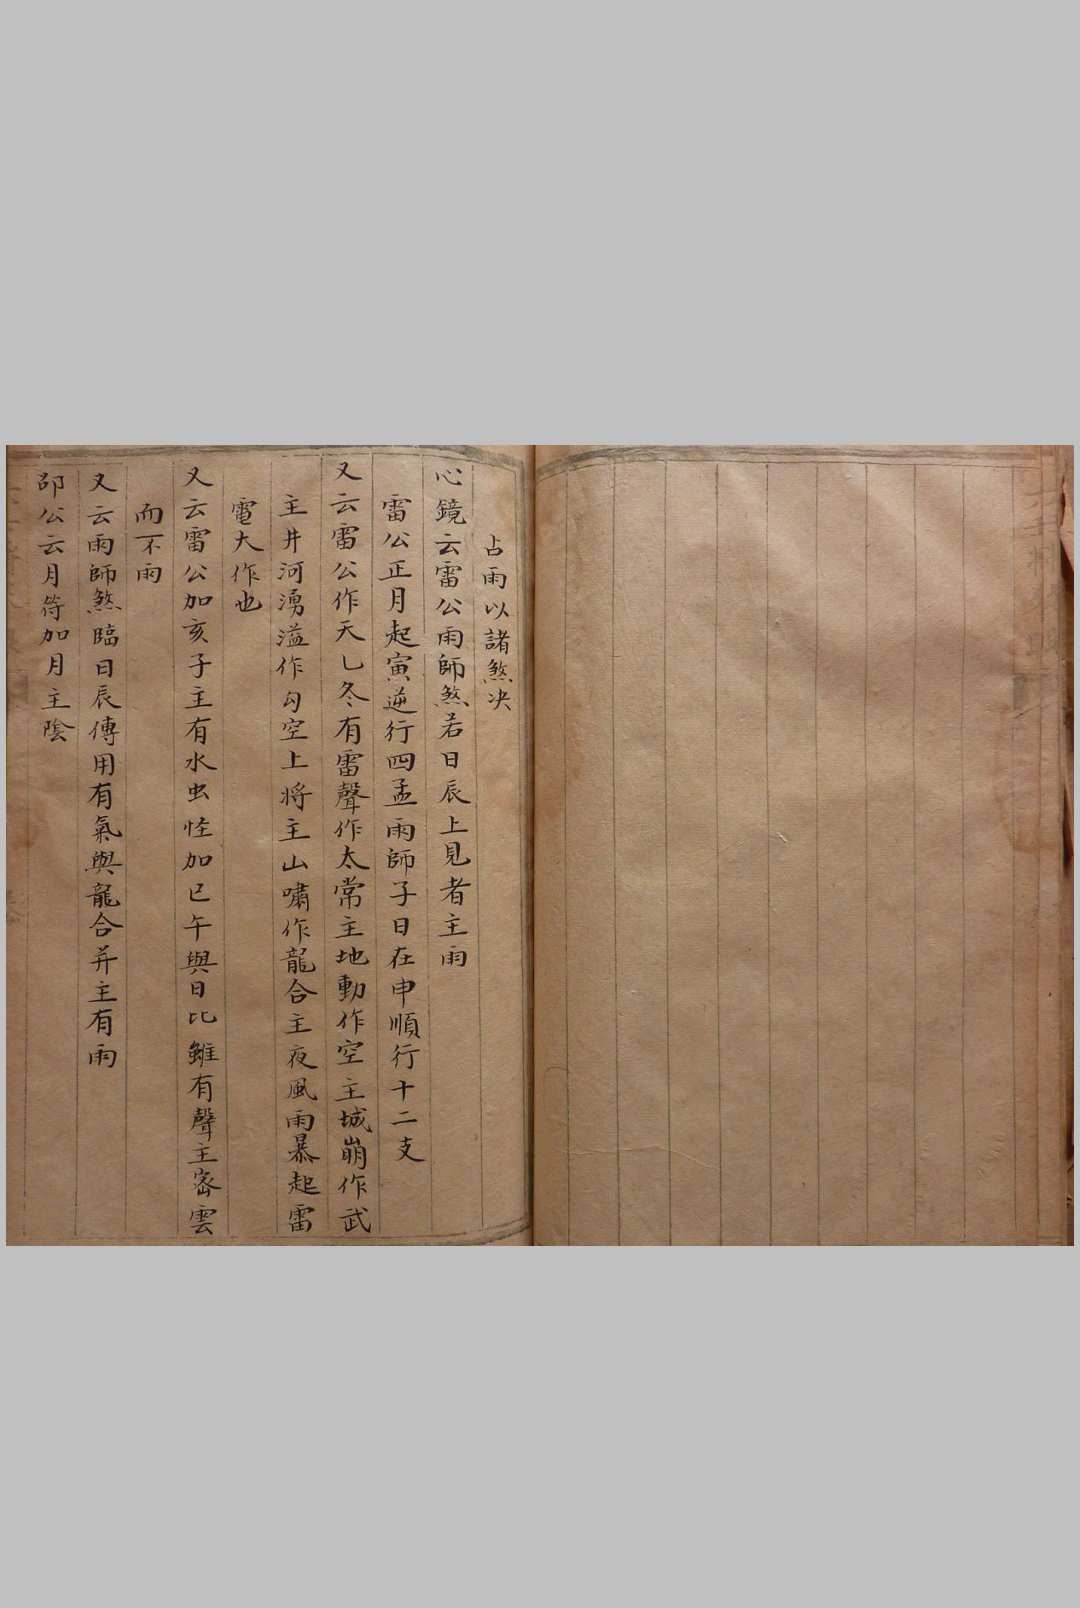 占雨以諸煞决
心鏡云雷公雨師煞若日辰上見者主雨
雷公正月起寅逆行四孟雨師子日在申順行十二支
又云雷公作天乚冬有雷聲作太常主地動作空主城崩作武
主井河湧溢作勾空上将主山嘯作龍合主夜風雨暴起雷
電大作也
又云雷公加亥子主有水虫怪加巳午與日比雖有聲主宻雲
而不雨
又云雨師煞臨日辰傳用有氣與龍合并主有雨
邵公云月符加月主陰